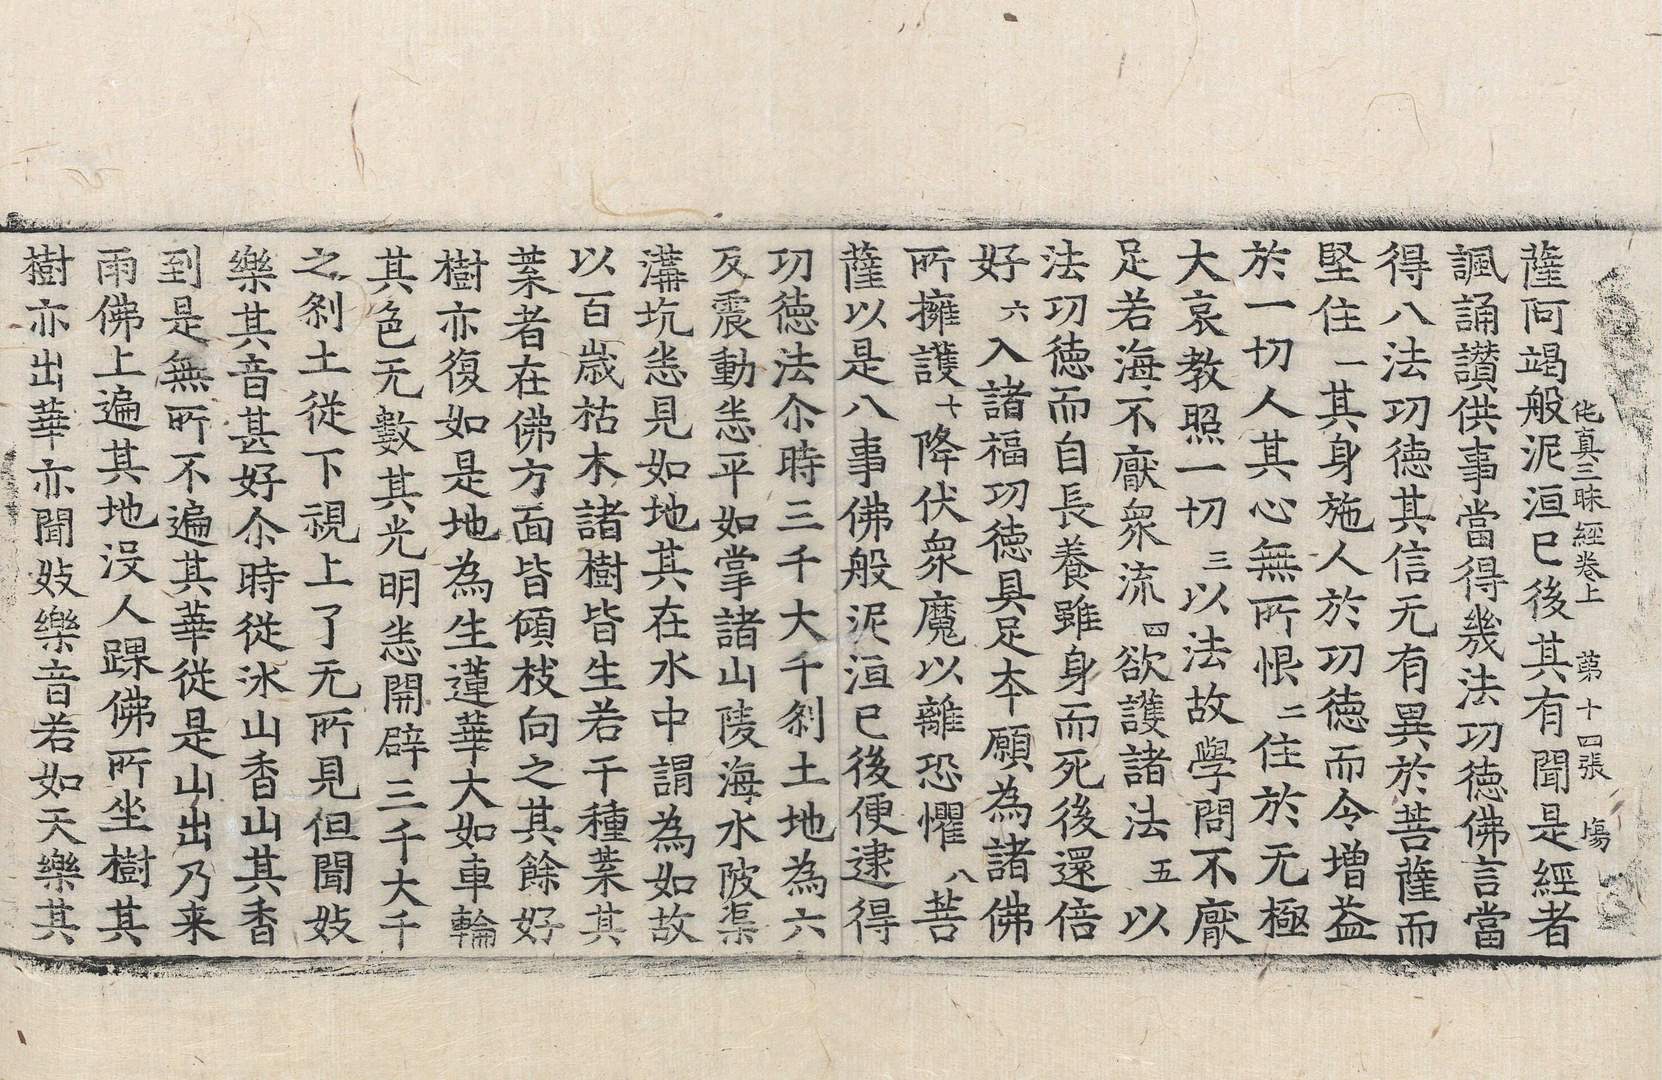 薩阿竭般泥洹已後其有聞是經者
諷誦讃供事當得幾法功德佛言當
得八法功德其信无有異於菩薩而
堅住一其身施人於功德而令增益
於一切人其心無所恨二住於无極
大哀教照一切三以法故學問不厭
足若海不厭衆流四欲護諸法五以
法功德而自長養雖身而死後還倍
好六入諸福功德具足本願為諸佛
所擁護七降伏衆魔以離恐懼八菩
薩以是八事佛般泥洹已後便逮得
功德法尒時三千大千刹土地為六
反震動悉平如掌諸山陵海水陂渠
溝坑悉見如地其在水中謂為如故
以百歳枯木諸樹皆生若干種葉其
葉者在佛方面皆傾枝向之其餘好
樹亦復如是地為生蓮華大如車輪
其色无數其光明悉開辟三千大千
之刹土從下視上了无所見但聞妓
樂其音甚好尒時從冰山香山其香
到是無所不遍其華從是山出乃来
雨佛上遍其地没人踝佛所坐樹其
樹亦出華亦聞妓樂音若如天樂其
仛真三昧經卷上　第十四張　塲